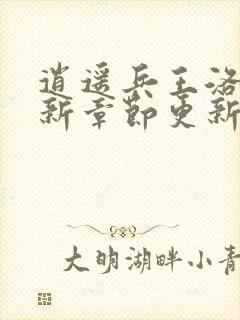 逍遥兵王洛
新章节更新
大明湖畔小青